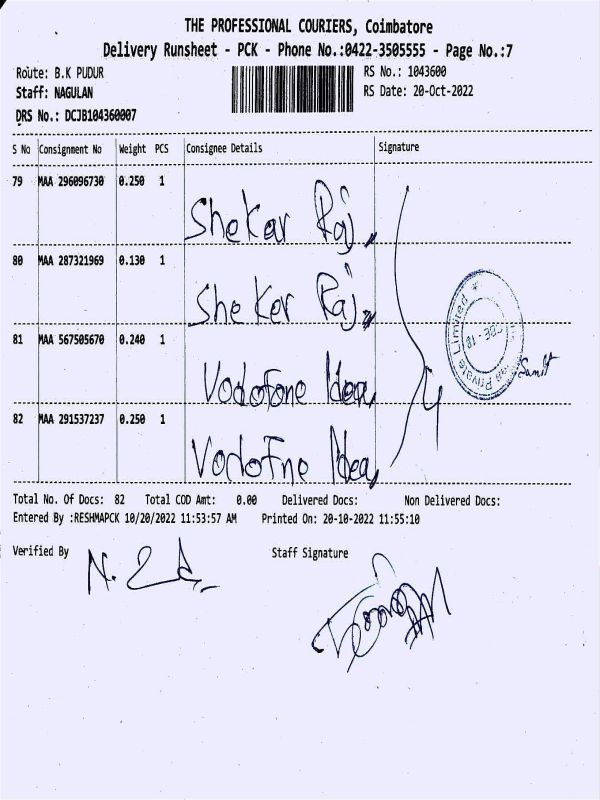 THE PROFESSIONAL COURIERS, Coimbatore
Delivery Runsheet - PCK - Phone No.:0422-3505555 - Page No.:7
Route: B.K PUDUR
RS No.: 1043600
Staff: NAGULAN
RS Date: 20-Oct-2022
DRS No.: DCJB104360007
S No Consignment No Weight PCS Consignee Details Signature
79 MAA 296096730 0.250 1 Shekar Raj
80 MAA 287321969 0.130 1 Sheker Raj
81 MAA 567505670 0.240 1 Vodofone Idea
82 MAA 291537237 0.250 1 VodoFne Idea
4
Private Limited
Total No. Of Docs: 82 Total COD Amt: 0.00 Delivered Docs: Non Delivered Docs:
Entered By :RESHMAPCK 10/20/2022 11:53:57 AM Printed On: 20-10-2022 11:55:10
Verified By
Staff Signature